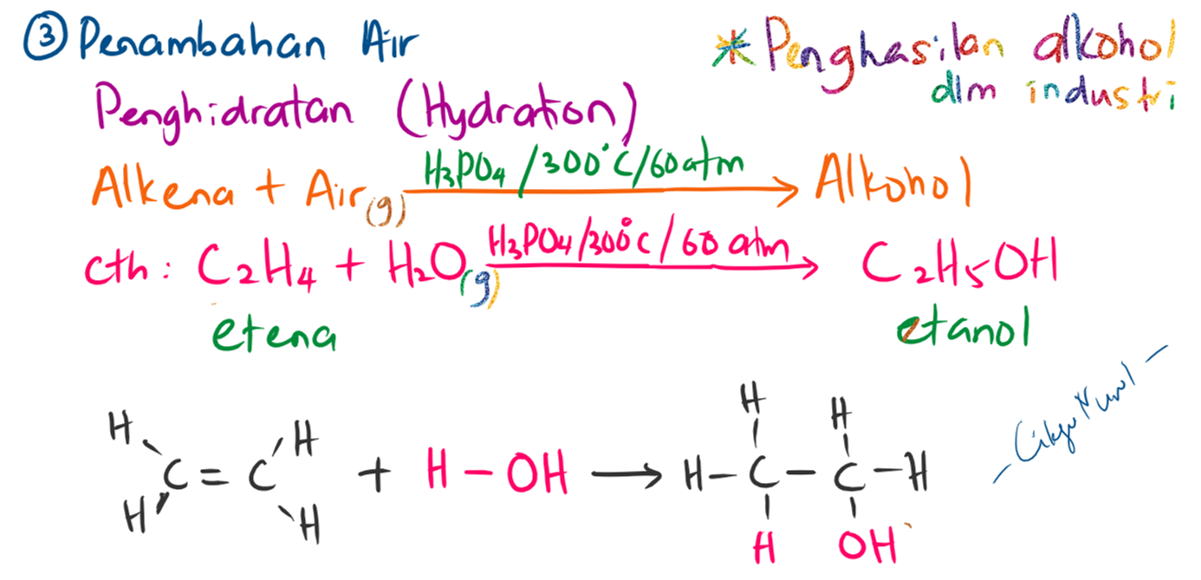 ③ Penambahan Air
* Penghasilan alkohol
dlm industri
Penghidratan (Hydration)
Alkena + Air(g) H₃PO₄/300°C/60atm → Alkohol
cth : C₂H₄ + H₂O(g) H₃PO₄/300°C/60 atm → C₂H₅OH
etena etanol
H H H H
C = C + H – OH → H – C – C – H
H H H OH
– Cikgu Nurul –